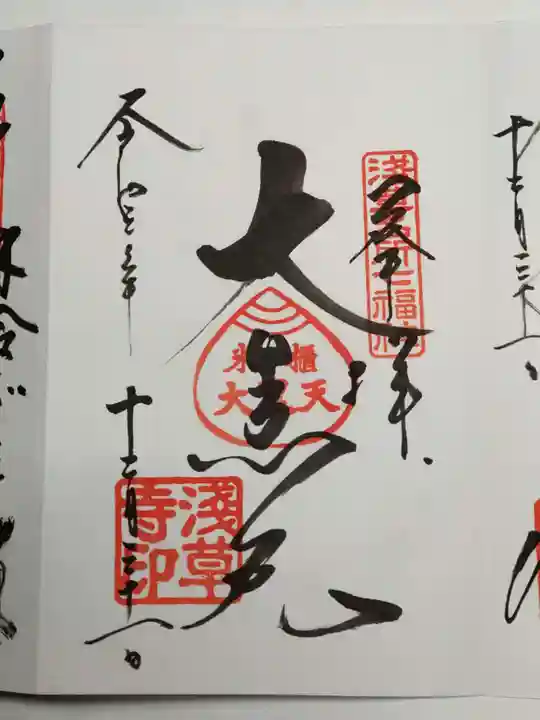 奉拝
浅草名所七福神
大黒天
米櫃
大黒天
浅草
寺印
令和三年
十二月三十一日
十二月三十